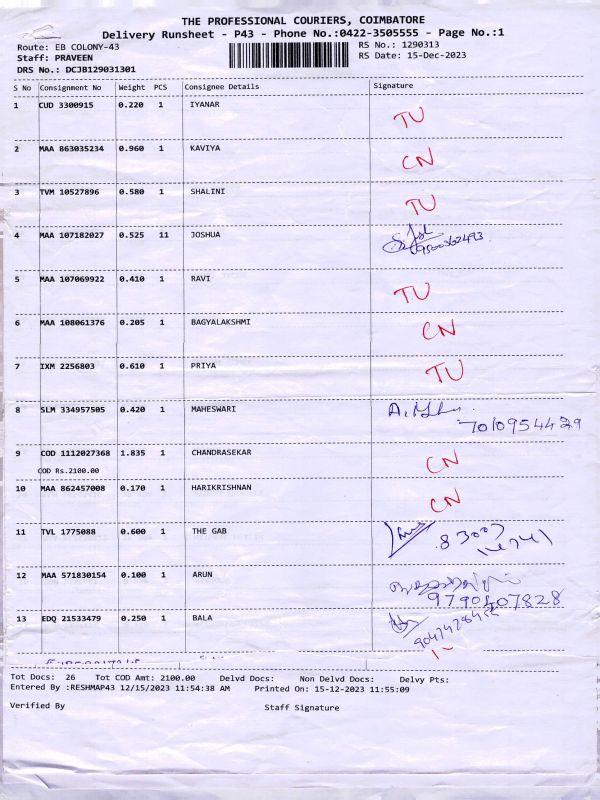 THE PROFESSIONAL COURIERS, COIMBATORE
Delivery Runsheet - P43 - Phone No.:0422-3505555 - Page No.:1
Route: EB COLONY-43
RS No.: 1290313
Staff: PRAVEEN
RS Date: 15-Dec-2023
DRS No.: DCJB129031301
S No Consignment No Weight PCS Consignee Details Signature
1 CUD 3300915 0.220 1 IYANAR TU
2 MAA 863035234 0.960 1 KAVIYA CN
3 TVM 10527896 0.580 1 SHALINI TU
4 MAA 107182027 0.525 11 JOSHUA
9500362493
5 MAA 107069922 0.410 1 RAVI TU
6 MAA 108061376 0.205 1 BAGYALAKSHMI CN
7 IXM 2256803 0.610 1 PRIYA TU
8 SLM 334957505 0.420 1 MAHESWARI
7010954429
9 COD 1112027368 1.835 1 CHANDRASEKAR CN
COD Rs.2100.00
10 MAA 862457008 0.170 1 HARIKRISHNAN CN
11 TVL 1775088 0.600 1 THE GAB
12 MAA 571830154 0.100 1 ARUN
9790407828
13 EDQ 21533479 0.250 1 BALA
Tot Docs: 26 Tot COD Amt: 2100.00 Delvd Docs: Non Delvd Docs: Delvy Pts:
Entered By :RESHMAP43 12/15/2023 11:54:38 AM Printed On: 15-12-2023 11:55:09
Verified By Staff Signature